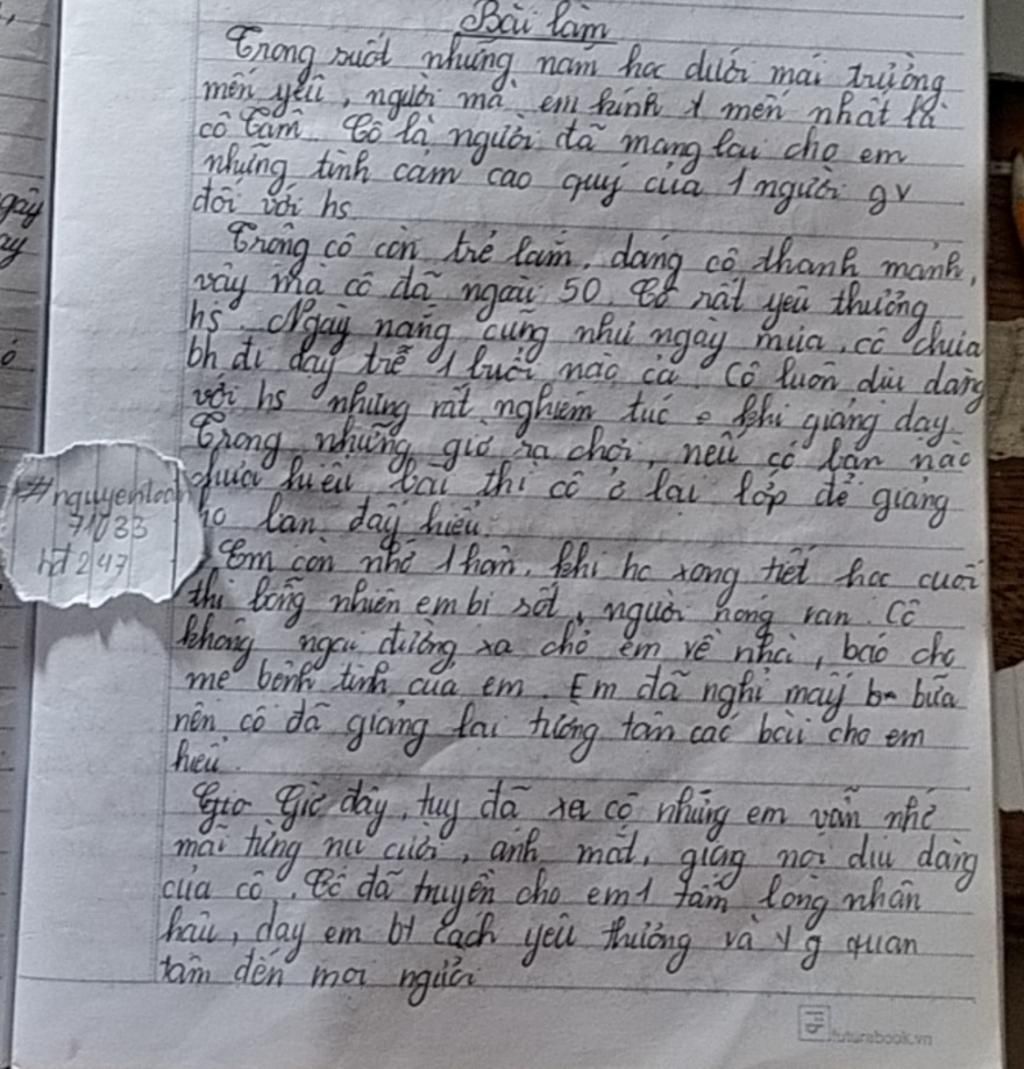 Bài làm
Trong suốt những năm học dưới mái trường
mến yêu, người mà em kính mến nhất là
cô Tâm. Cô là người đã mang lại cho em
những tình cảm cao quý của 1 người gv
đối với hs.
Trông cô còn trẻ lắm, dáng cô thanh mảnh,
vậy mà cô đã ngoài 50. Cô rất yêu thương
hs. Ngày nắng cũng như ngày mưa, cô chưa
bh đi dạy trễ 1 buổi nào cả. Cô luôn dịu dàng
với hs nhưng rất nghiêm túc khi giảng dạy.
Trong những giờ ra chơi, nếu có bạn nào
chưa hiểu bài thì cô ở lại lớp để giảng
cho bạn ấy hiểu.
Em còn nhớ 1 hôm, khi học xong tiết học cuối
thì bỗng nhiên em bị sốt, người nóng ran. Cô
không ngại đường xa chở em về nhà, báo cho
mẹ bệnh tình của em. Em đã nghỉ mấy bữa
nên cô đã giảng lại tường tận các bài cho em
hiểu.
Giờ đây, tuy đã xa cô nhưng em vẫn nhớ
mãi từng nụ cười, ánh mắt, giọng nói dịu dàng
của cô. Cô đã truyền cho em 1 tấm lòng nhân
hậu, dạy em bt cách yêu thương và quan
tâm đến mọi người
71033
hd247
gày
ay
futurebook.vn